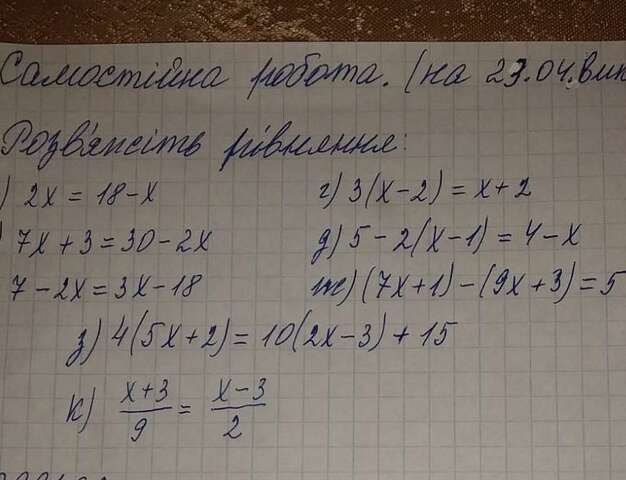 Самостійна робота. (на 23.04. вик
Розв'яжіть рівняння:
) 2x = 18-x г) 3(x-2) = x+2
) 7x+3=30-2x д) 5-2(x-1) = 4-x
7-2x=3x-18 ж) (7x+1)-(9x+3)=5
з) 4(5x+2)=10(2x-3)+15
к) (x+3)/9 = (x-3)/2